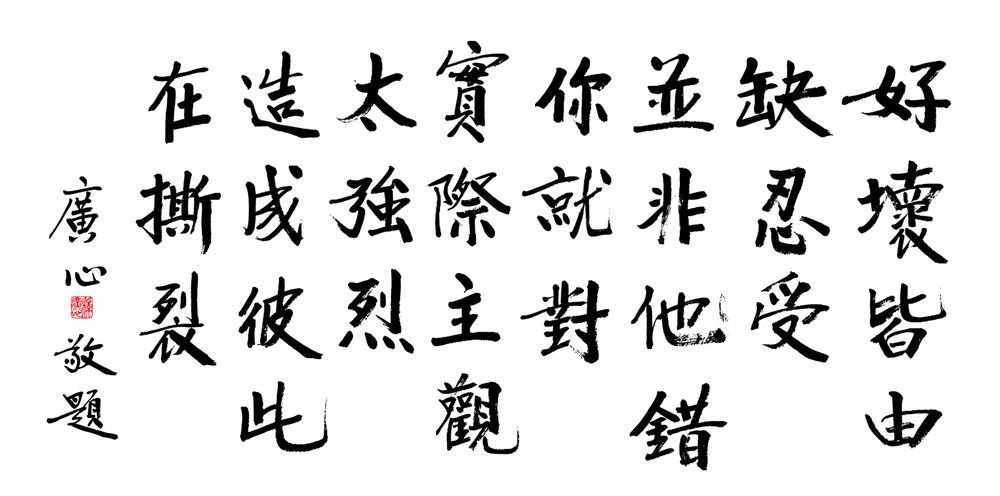 好壞皆由
缺忍受
並非他錯
你就對
實際主觀
太強烈
造成彼此
在撕裂
廣心敬題